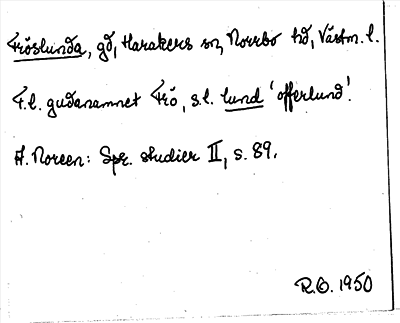 Fröslunda, gd, Harakers sn, Norrbo hd, Västm. l.
F.l. gudanamnet Frö, s.l. lund 'offerlund'.
A. Noreen: Spr. studier II, s. 89.
R.O. 1950